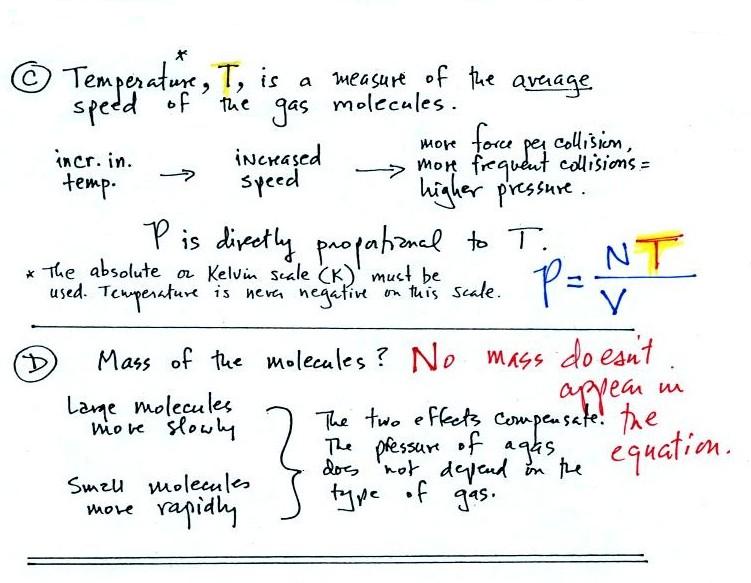 *
Ⓒ Temperature, T, is a measure of the average
speed of the gas molecules.
incr. in. temp. → increased speed → more force per collision,
more frequent collisions =
higher pressure.
P is directly proportional to T.
* The absolute or Kelvin scale (K) must be
used. Temperature is never negative on this scale.
P = NT / V
Ⓓ Mass of the molecules? No mass doesn't
appear in
the
equation.
Large molecules
move slowly
Small molecules
move rapidly
The two effects compensate.
The pressure of a gas
does not depend on the
type of gas.